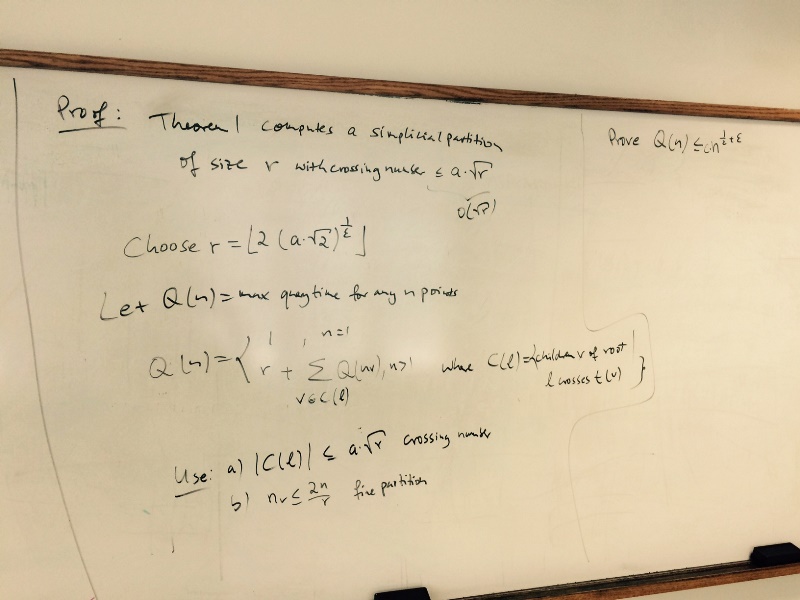 Proof: Theorem 1 computes a simplicial partition
of size r with crossing number ≤ a·√r
O(√r)
Choose r = ⌊2 (a·√2)^{1/ε}⌋
Let Q(n) = max query time for any n points
Q(n) = { 1 , n=1
r + Σ_{v∈C(l)} Q(n_v), n>1 where C(l) = {children v of root | l crosses t(v)}
Use: a) |C(l)| ≤ a·√r crossing number
b) n_v ≤ 2n/r fine partition
Prove Q(n) ≤ c·n^{1/2+ε}